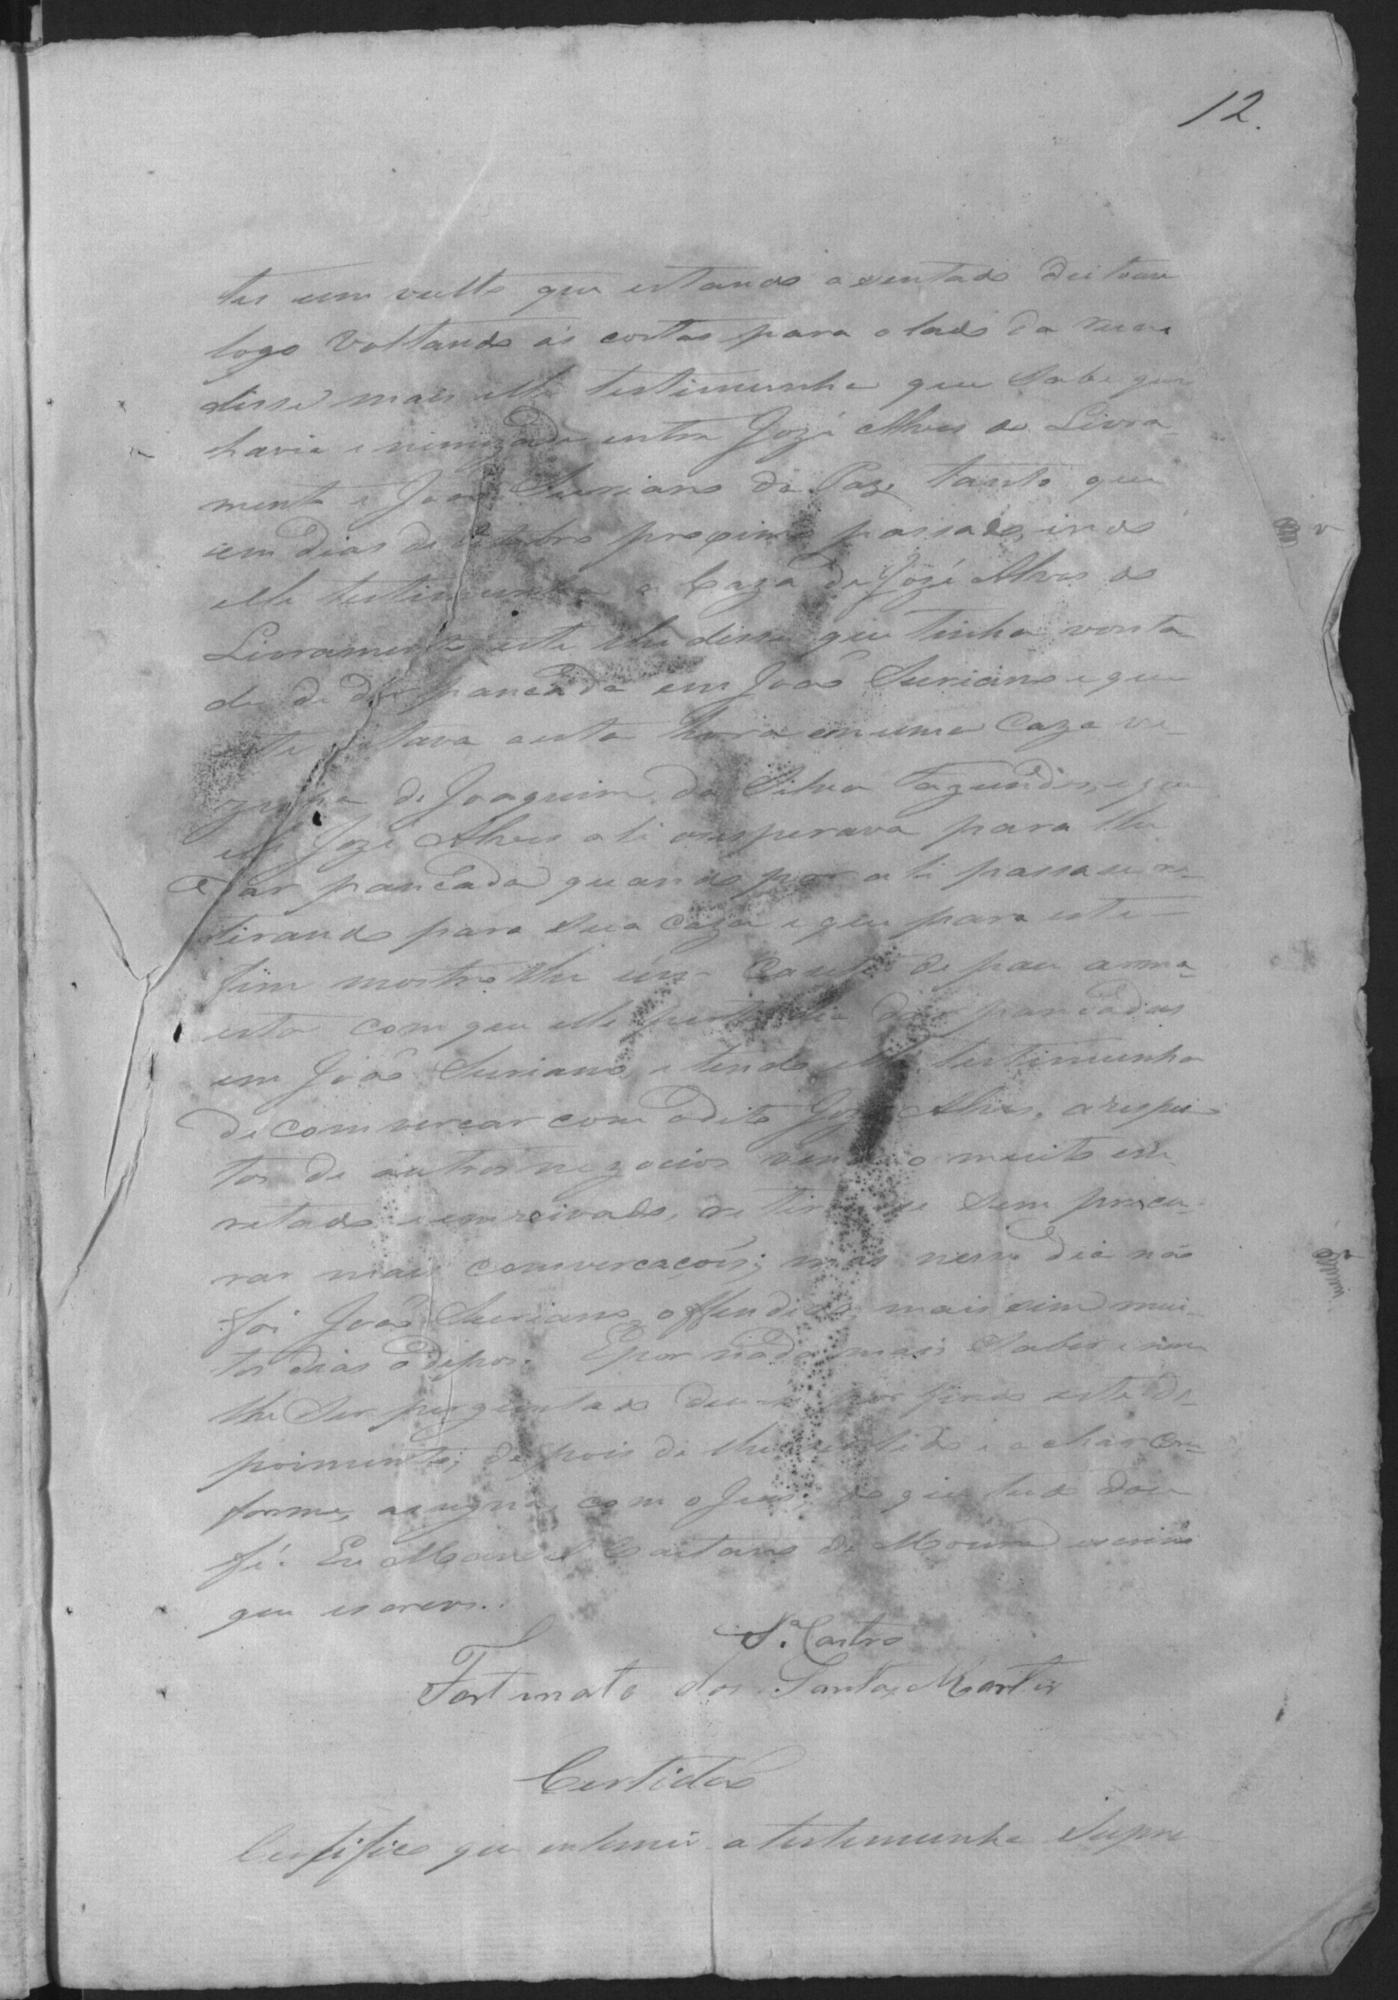 12.
tes um vulto que estando asentado deitou
logo voltando ás costas para o lado da rua
disse mais elle testimunha que sabe que
havia inimizade entre Jozé Alves do Livra-
mento e João Suriano da Paz, tanto que
em dias de Outubro proximo passado, indo
elle testimunha a Caza de Jozé Alves do
Livramento este lhe disse que tinha vonta
de de dar pancada em João Suriano e que
este estava a esta hora em uma Caza ve-
zinha de Joaquim da Silva Fagundes, e que
elle Jozé Alves ali o esperava para lhe
dar pancada quando por ali passase re-
tirando para sua Caza e que para este
fim mostro lhe um de pau
com que elle pertendia dar pancadas
em João Suriano, e tendo elle testimunha
de comverçar com o dito Jozé Alves, a respei-
tos de outros negocios vendo o muito eri-
retado e emraivado, retirou se sem procu-
rar mais comvercacões; mas nesse dia não
foi João Suriano offendido, mais sim mui-
tos dias depos. E por nada mais saber e nem
lhe ser preguntado deu-se por findo este de-
poimento; depois de lhe ser lido e achar con-
forme, asigna com o Juis; do que tudo dou
fé. Eu Manoel Caetano de Moura escrivão
que escrevi.
Sª. Castro
Fortunato dos Santos Martis
Certidão
Certifico que intimei a testemunha Supra